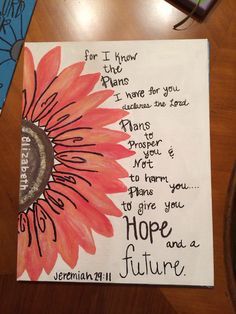 for I know
the
Plans
I have for you
declares the Lord
Plans
to
Prosper
you &
Not
to harm
Plans you....
to give you
Hope
and a
future.
Jeremiah 29:11
elizabeth